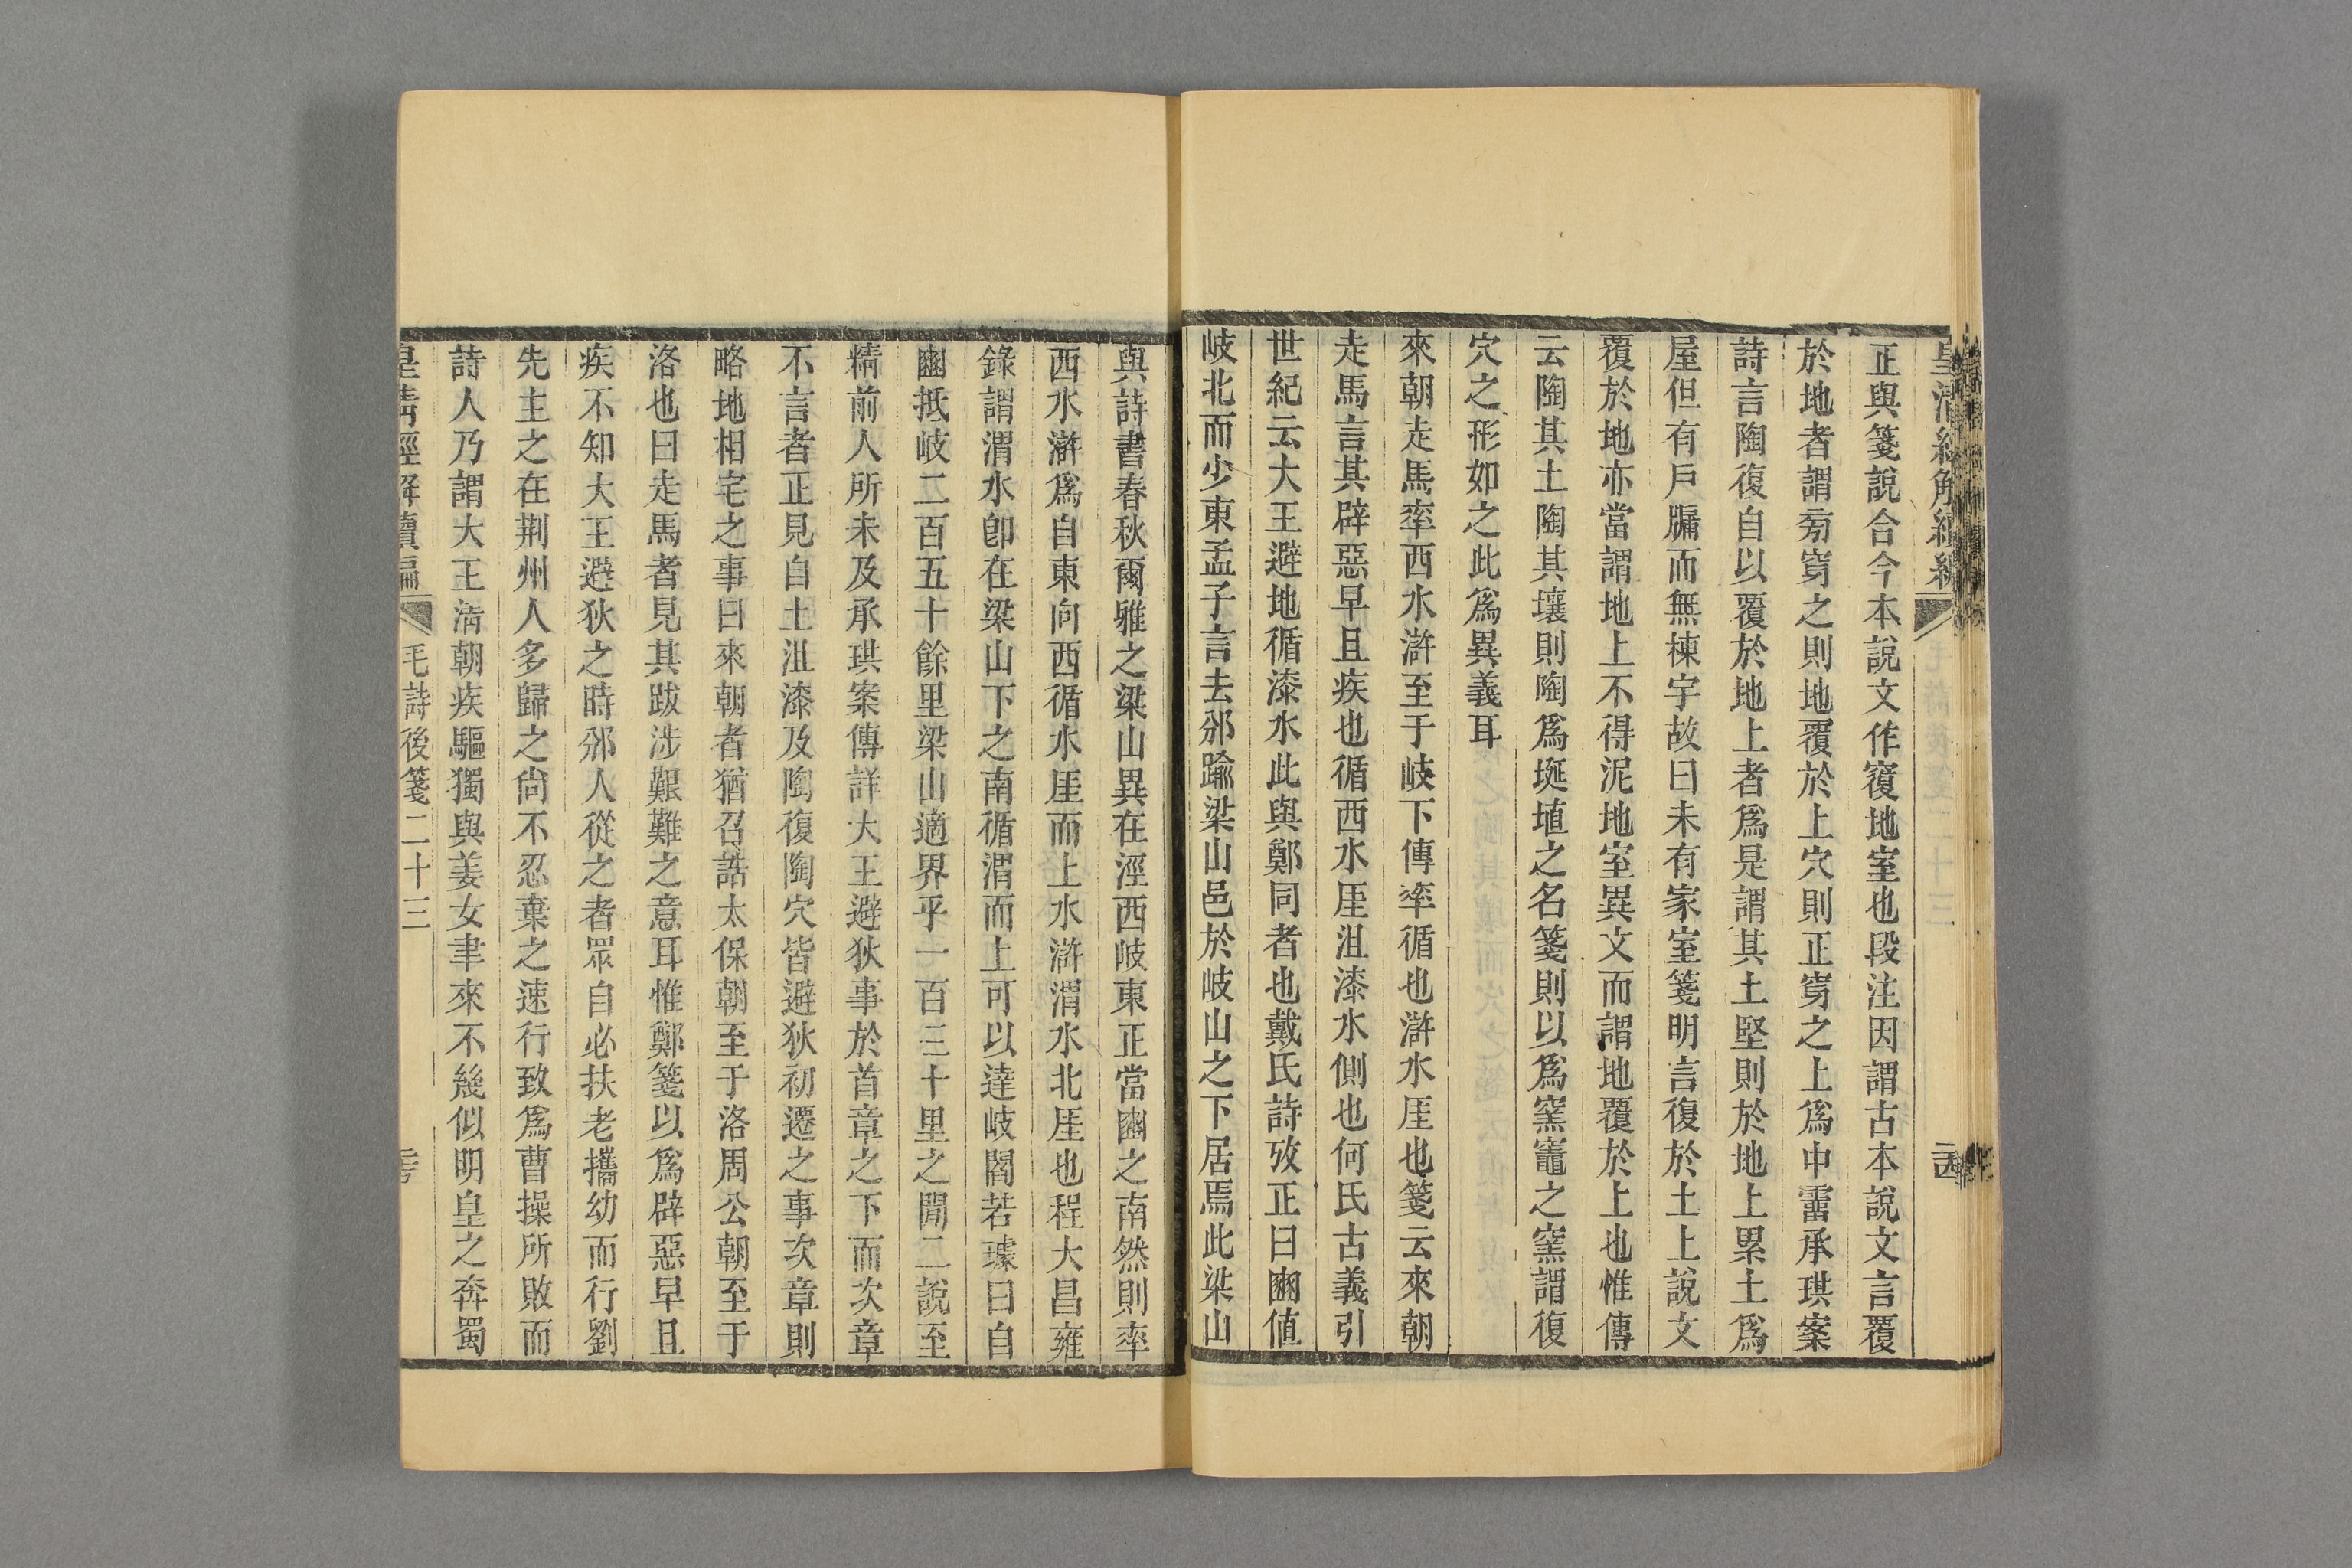 皇清經解續編
正與箋說合今本說文作㝮地室也段注因謂古本說文言覆
於地者謂旁穿之則地覆於上穴則正穿之上爲中霤承珙案
詩言陶復自以覆於地上者爲是謂其土堅則於地上累土爲
屋但有戶牖而無棟宇故曰未有家室箋明言復於土上說文
覆於地亦當謂地上不得泥地室異文而謂地覆於上也惟傳
云陶其土陶其壤則陶爲埏埴之名箋則以爲窯竈之窯謂復
穴之形如之此爲異義耳
來朝走馬率西水滸至于岐下傳率循也滸水厓也箋云來朝
走馬言其辟惡早且疾也循西水厓沮漆水側也何氏古義引
世紀云大王避地循漆水此與鄭同者也戴氏詩攷正曰豳値
岐北而少東孟子言去邠踰梁山邑於岐山之下居焉此梁山
與詩書春秋爾雅之梁山異在涇西岐東正當豳之南然則率
西水滸爲自東向西循水厓而上水滸渭水北厓也程大昌雍
錄謂渭水卽在梁山下之南循渭而上可以達岐閻若璩曰自
豳抵岐二百五十餘里梁山適界乎一百三十里之閒二說至
精前人所未及承珙案傳詳大王避狄事於首章之下而次章
不言者正見自土沮漆及陶復陶穴皆避狄初遷之事次章則
略地相宅之事曰來朝者猶召誥太保朝至于洛周公朝至于
洛也曰走馬者見其跋涉艱難之意耳惟鄭箋以爲辟惡早且
疾不知大王避狄之時邠人從之者眾自必扶老攜幼而行劉
先主之在荆州人多歸之尙不忍棄之速行致爲曹操所敗而
詩人乃謂大王淸朝疾驅獨與姜女聿來不幾似明皇之奔蜀
皇清經解續編 毛詩後箋二十三